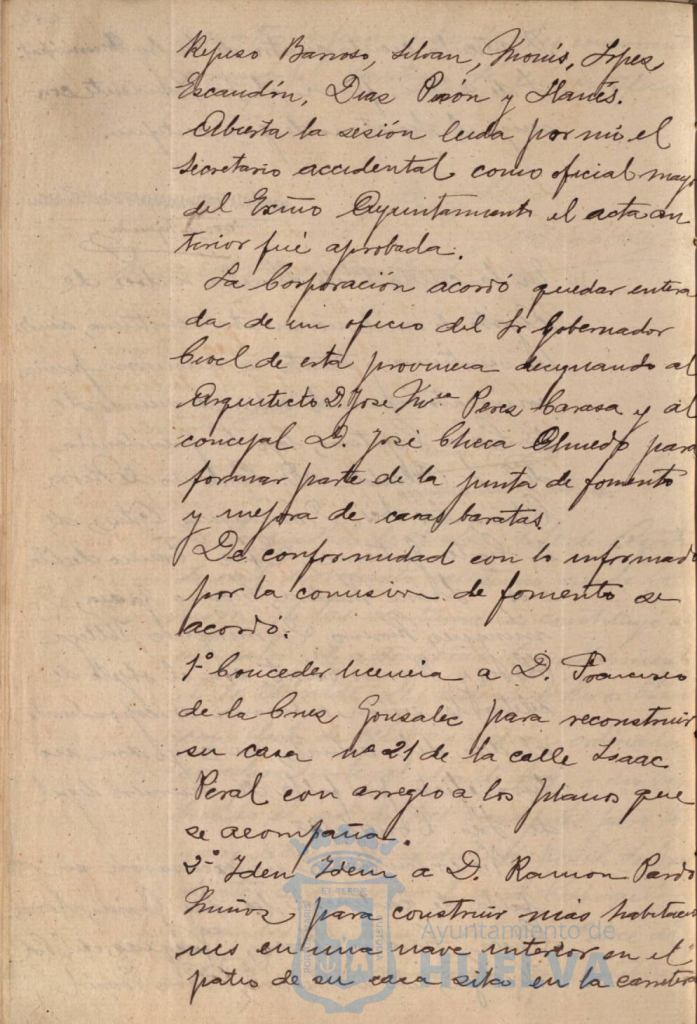 Repiso Barroso, Silvan, Monís, Lopez
Escandón, Diaz Pinón y Llanés.
Abierta la sesión leida por mi el
secretario accidental como oficial mayo
del Exmo Ayuntamiento el acta an
terior fué aprobada.
La Corporación acordó quedar entera
da de un oficio del Sr Gobernador
Civil de esta provincia designando al
Arquitecto D. Jose Mª Perez Carasa y al
concejal D. José Checa Olmedo para
formar parte de la junta de fomento
y mejora de casas baratas
De conformidad con lo informado
por la comision de fomento se
acordó.
1º Conceder licencia a D. Francisco
de la Cruz Gonzalec para reconstruir
su casa nº 21 de la calle Isaac
Peral con arreglo a los planos que
se acompaña.
2º Iden Idem a D. Ramon Pardo
Muñoz para construir mas habitacio
nes en una nave interior en el
patio de su casa sita en la carretera
Ayuntamiento de
HUELVA